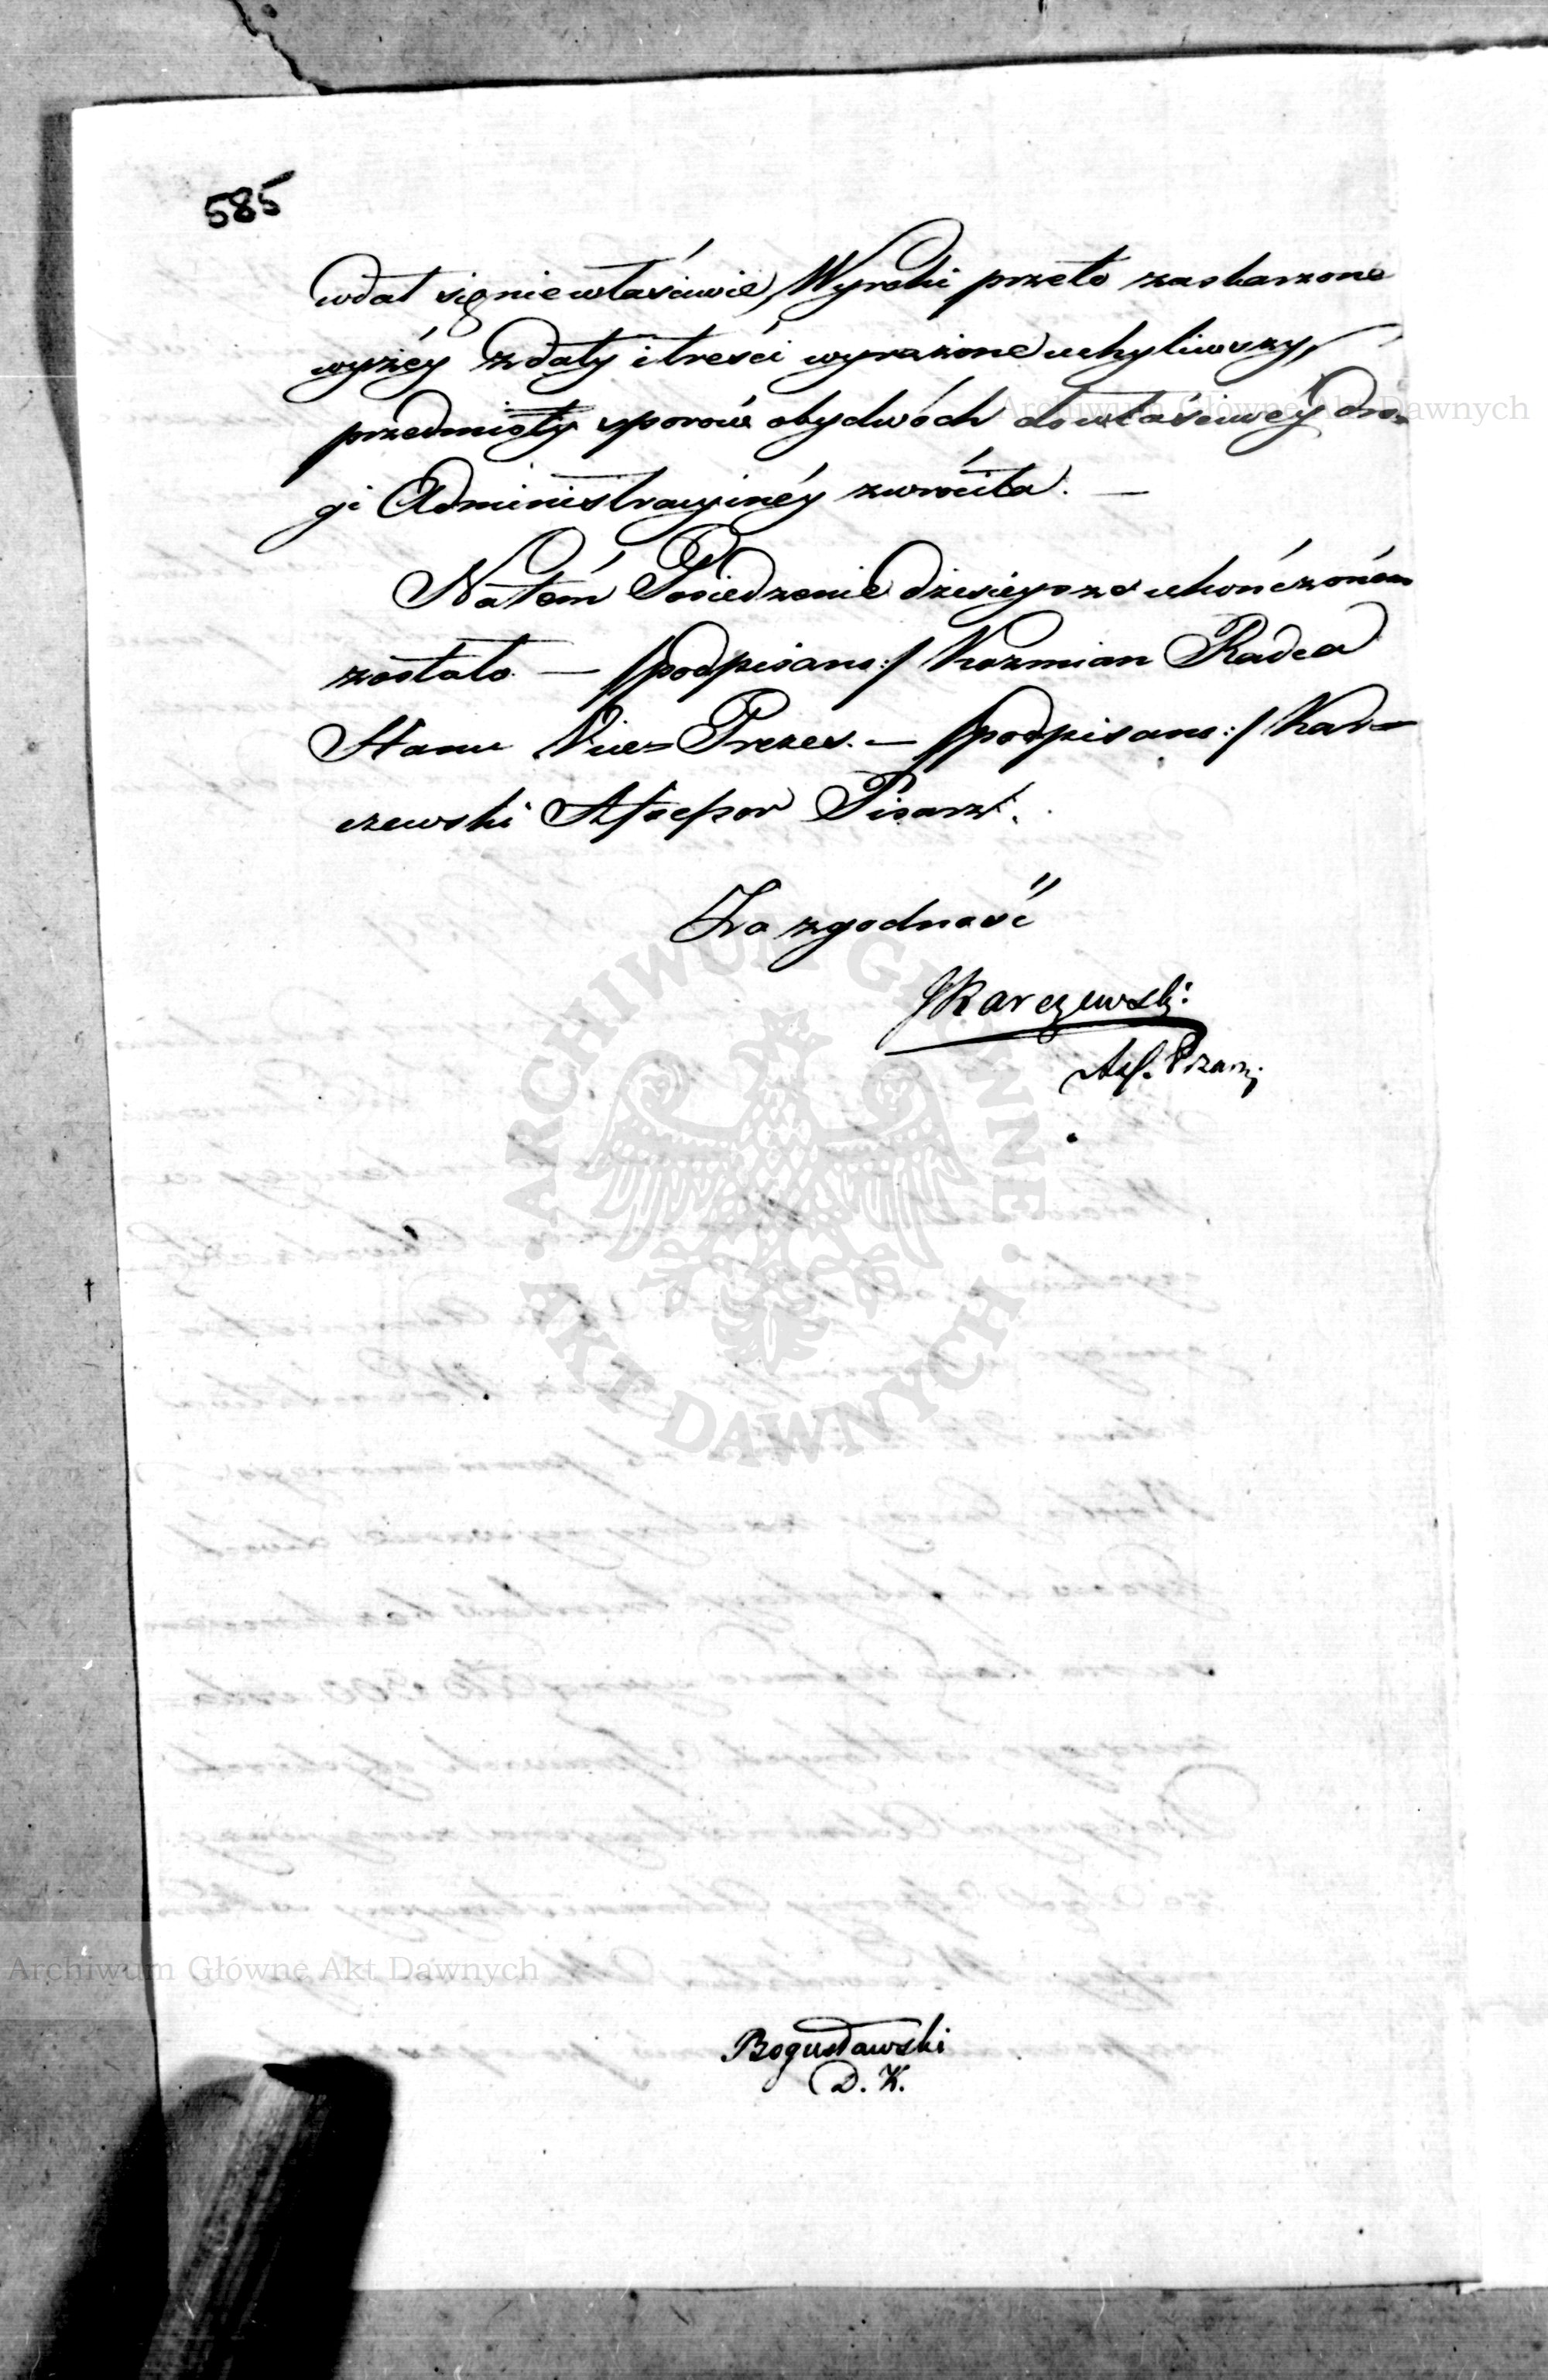 585
wdał się niewłaściwie, Wyroki przeto zaskarzone
wyżéy z daty i treści wyrażone uchyliwszy,
przedmioty sporów obydwóch do właściwéy dro=
gi Administracyinéy zwróciła. —
Na tém Posiedzenie dzisieysze ukończoném
zostało. — /podpisano:/ Kozmian Radca
Stanu Vice=Prezes. — /podpisano:/ Kar=
czewski Assessor Pisarz.
Za zgodność
JKarczewski
Ass. Pisarz.
Bogusławski
D. K.
Archiwum Główne Akt Dawnych
Archiwum Główne Akt Dawnych
ARCHIWUM GŁÓWNE · AKT DAWNYCH ·